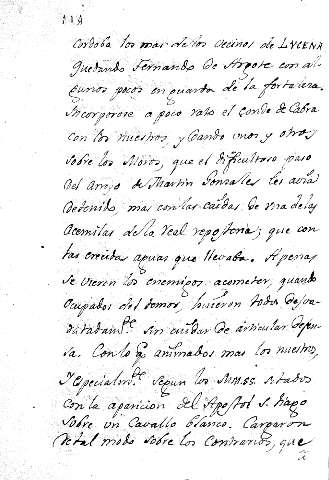 114
Cordoba los mas de los vecinos de LVCENA
quedando Fernando de Argote con al-
gunos pocos en guarda de la fortaleza.
Incorporose a poco rato el Conde de Cabra
con los nuestros, y dando unos y otros
sobre los Moros, que el dificultoso paso
del Arroyo de Martin Gonzales les avia
detenido, mas con las caidas de una de las
Acemilas de la Real reposteria; que con
las crecidas aguas que llevaba. Apenas
se vieron los enemigos acometer, quando
ocupados del temor, huieron todos
sin cuidar de articular defen-
sa. Con lo q̃ animados mas los nuestros,
y especialm.te segun los M.M.SS. citados
con la aparicion del Apostol S.tiago
sobre un Cavallo blanco. Cargaron
de tal modo sobre los Contrarios, que
a